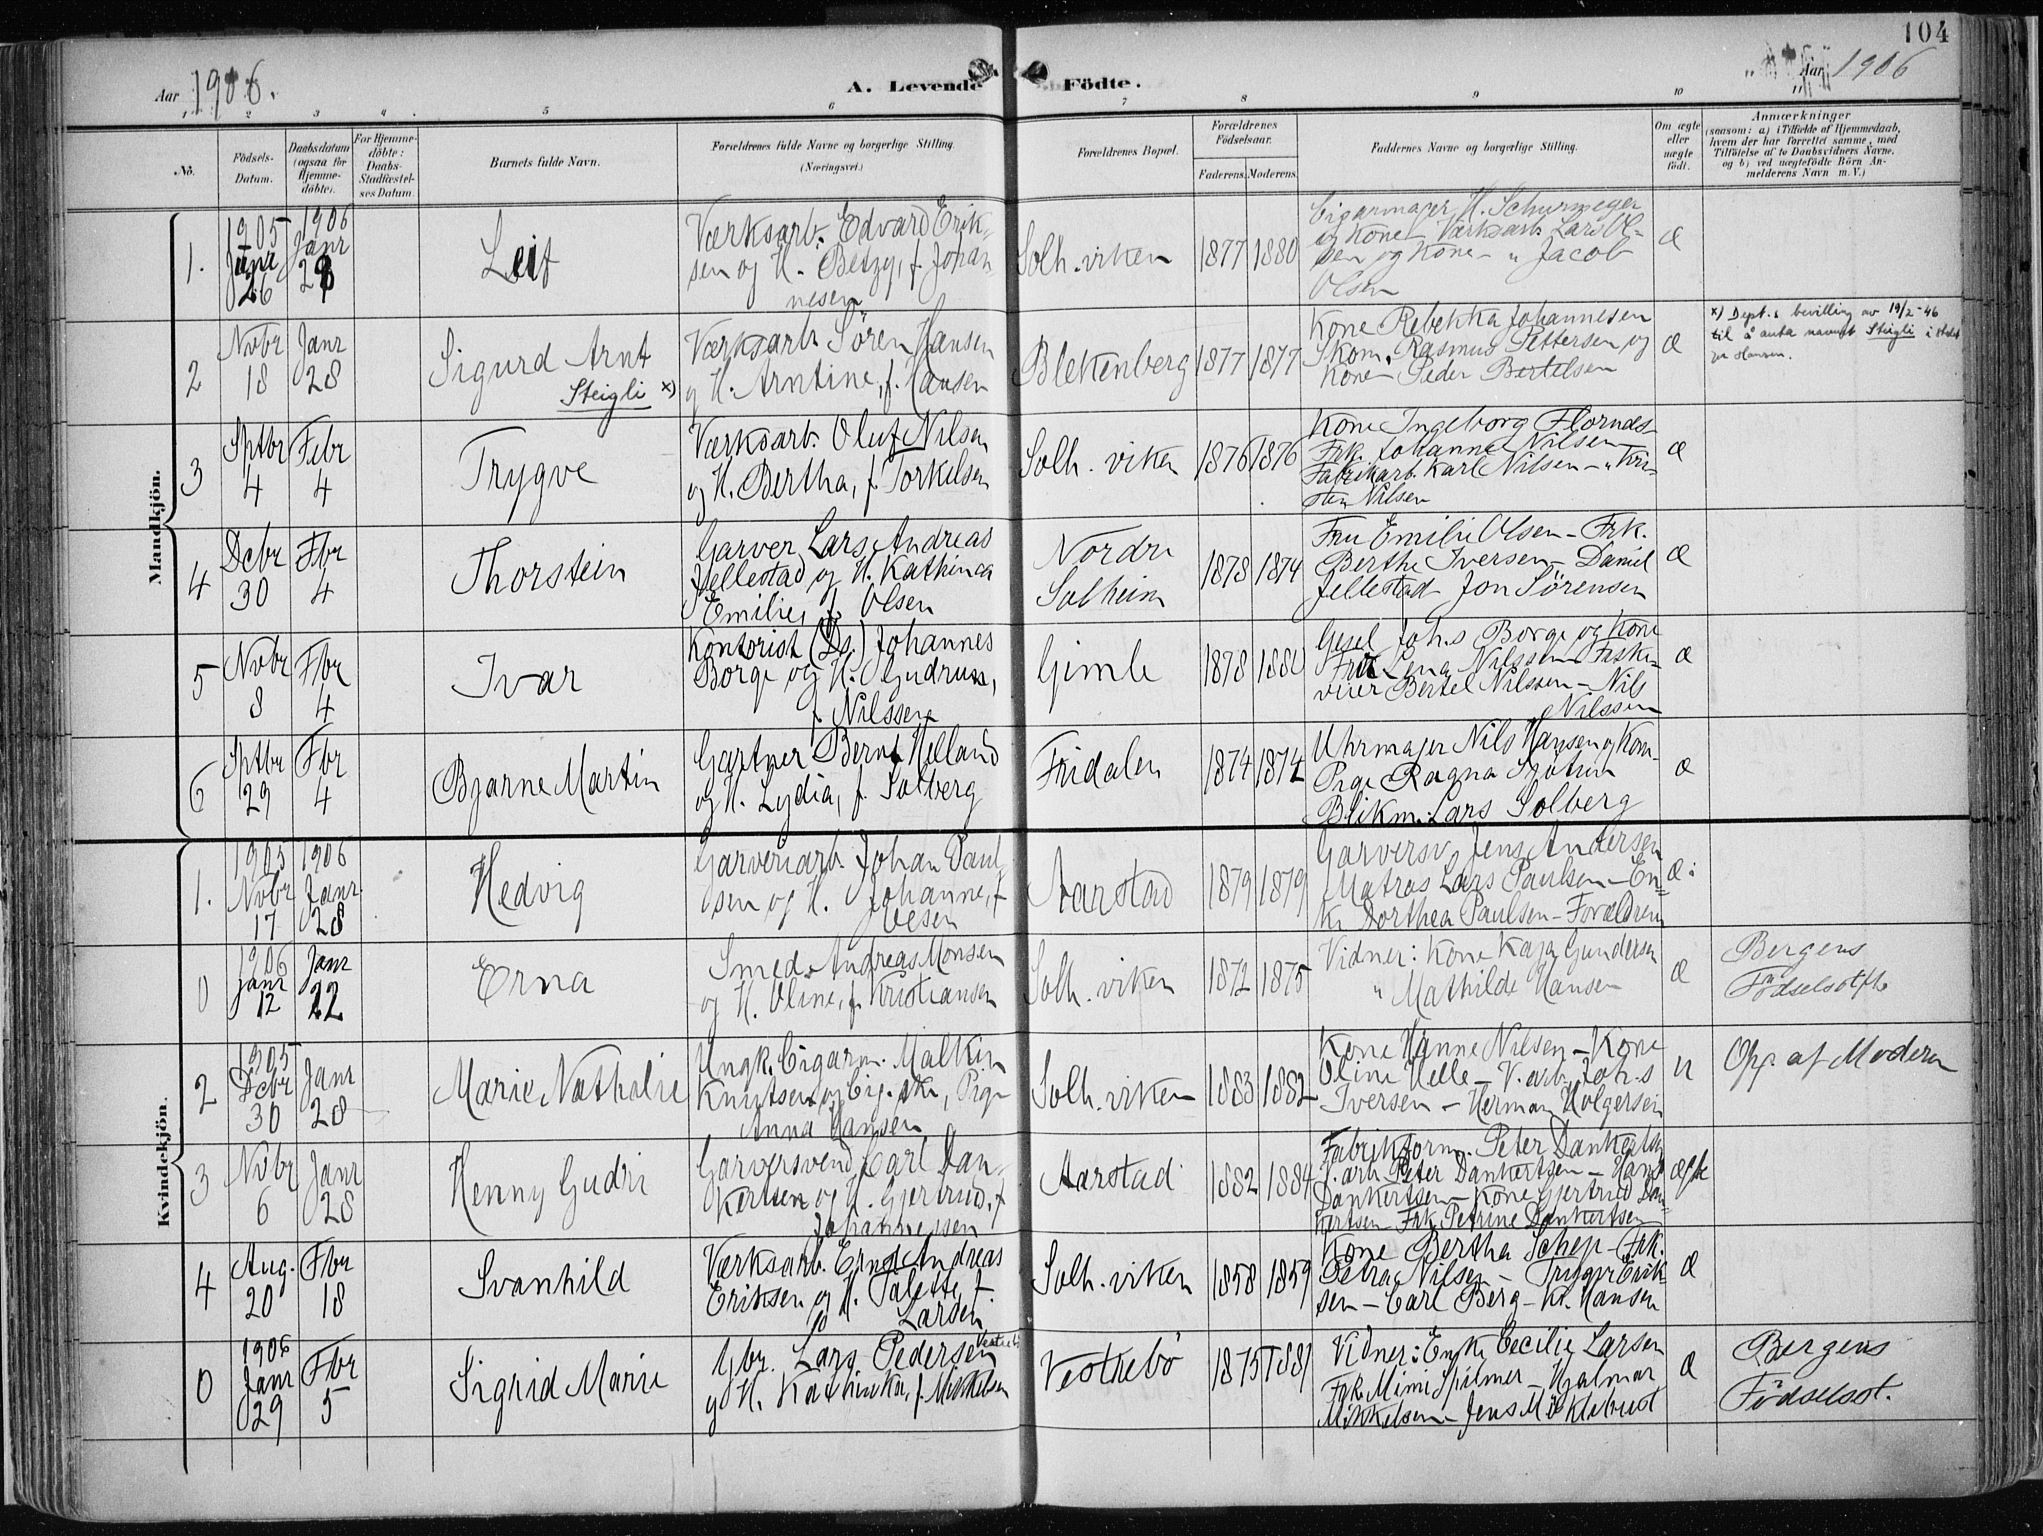 104
Aar 1906.
A. Levende Födte.
Aar 1906
1 2 3 4 5 6 7 8 9 10 11
No.
Födsels-
Datum.
Daabsdatum
(ogsaa for
Hjemme-
döbte).
For Hjemme-
döbte:
Daabs-
Stadfæstel-
ses Datum.
Barnets fulde Navn.
Forældrenes fulde Navne og borgerlige Stilling.
(Næringsvei.)
Forældrenes Bopæl.
Forældrenes
Födselsaar.
Faderens. Moderens.
Faddernes Navne og borgerlige Stilling.
Om ægte
eller
uægte
födt.
Anmærkninger
(saasom: a) i Tilfælde af Hjemmedaab,
hvem der har forrettet samme, med
Tilföielse af to Daabsvidners Navne,
og b) ved uægtefödte Börn An-
melderens Navn m. V.)
Mandkjön.
1.
1905
26
1906
Janr
28
Leif
Værksarb. Edvard Erik-
sen og H. Betzy, f. Johan-
nesen
Solh.viken
1877
1880
Cigarmager H. Schurmeyer
og Kone - Værksarb. Lars Ol-
sen og Kone - " Jacob
Olsen
æ
2
Novbr
18
Janr
28
Sigurd Arnt
Steigli x)
Værksarb. Sören Hansen
og H. Arntine, f. Hansen
Blekenberg
1877
1877
Kone Rebekka Johannesen
Skom. Rasmus Pettersen og
Kone - Peder Bertelsen
æ
x) Dept.s bevilling av 19/2-46
til å anta navnet Steigli i stedet
for Hansen.
3
Sptbr
4
Febr
4
Trygve
Værksarb. Oluf Nilsen
og H. Bertha, f. Torkelsen
Solh. viken
1876
1876
Kone Ingeborg Flornes
Frk. Johanne Nilsen -
Fabrikarb. Karl Nilsen - " Kri-
sten Nilsen
æ
4
Dcbr
30
Fbr
4
Thorstein
Garver Lars Andreas
Jellestad og H. Kathinca
Emilie, f. Olsen
Nordre
Solheim
1878
1874
Fru Emilie Olsen - Frk.
Berthe Iversen - Daniel
Jellestad - Jon Sörensen
æ
5
Novbr
8
Fbr
4
Ivar
Kontorist (Ds.) Johannes
Borge og H. Gudrun,
f. Nilssen
Gimle
1878
1880
Gesel Joh.s Borge og Kone
Frk Lena Nilssen - Fiske-
veier Bertel Nilssen - Nils
Nilssen
æ
6
Sptbr
29
Fbr
4
Bjarne Martin
Gartner Bernt Helland
og H. Lydia, f. Solberg
Fridalen
1874
1874
Uhrmager Nils Hansen og Kone
Pige Ragna
Blikm. Lars Solberg
æ
Kvindekjön.
1.
1905
Novbr
17
1906
Janr
28
Hedvig
Garveriarb. Johan Paul-
sen og H. Johanne, f.
Olsen
Aarstad
1879
1879
Garversv. Jens Andersen
Matros Lars Paulsen - En-
ke Dorthea Paulsen - Forældrene
æ
0
1906
Janr
12
Janr
22
Erna
Smed Andreas Monsen
og H. Oline, f. Kristiansen
Solh. viken
1872
1875
Vidner: Kone Kaja Gundersen
" Mathilde Hansen
æ
Bergens
Födselsstift.
2
1905
Dcbr
30
Janr
28
Marie Nathalie
Ungk. Cigarm. Malkin
Knutsen og Cig.ske, Pige
Anna Hansen
Solh.viken
1883
1882
Kone Hanne Nilsen - Kone
Oline Helle - V.arb. Joh.s
Iversen - Herman Holgersen
u
Opg. af Moderen
3
Novbr
6
Janr
28
Henny Gudri
Garversvend Carl Dan-
kertsen og H. Gjertrud, f.
Johannessen
Aarstad
1882
1884
Fabrikform. Peter Dankertsen
F.arb. Peter Dankertsen - Hans
Dankertsen - Kone Gjertrud Dan-
kertsen - Frk. Petrine Dankertsen
ægte
4
Aug.
20
Fbr
18
Svanhild
Værksarb. Ernst Andreas
Eriksen og H. Talette, f.
Larsen
Solh.viken
1858
1859
Kone Bertha Schep - Frk.
Petra Nilsen - Trygve Erik-
sen - Carl Berg - Kr. Hansen
æ
0
1906
Janr
29
Fbr
5
Sigrid Marie
Gbr. Lars Pedersen Vestrebö
og H. Kathinka, f. Mikkelsen
Vestrebö
1875
1881
Vidner: Enke Cecilie Larsen
Frk. Mimi Spilmer - Hjalmar
Mikkelsen - Jens Myklebust
æ
Bergens
Födselsst.